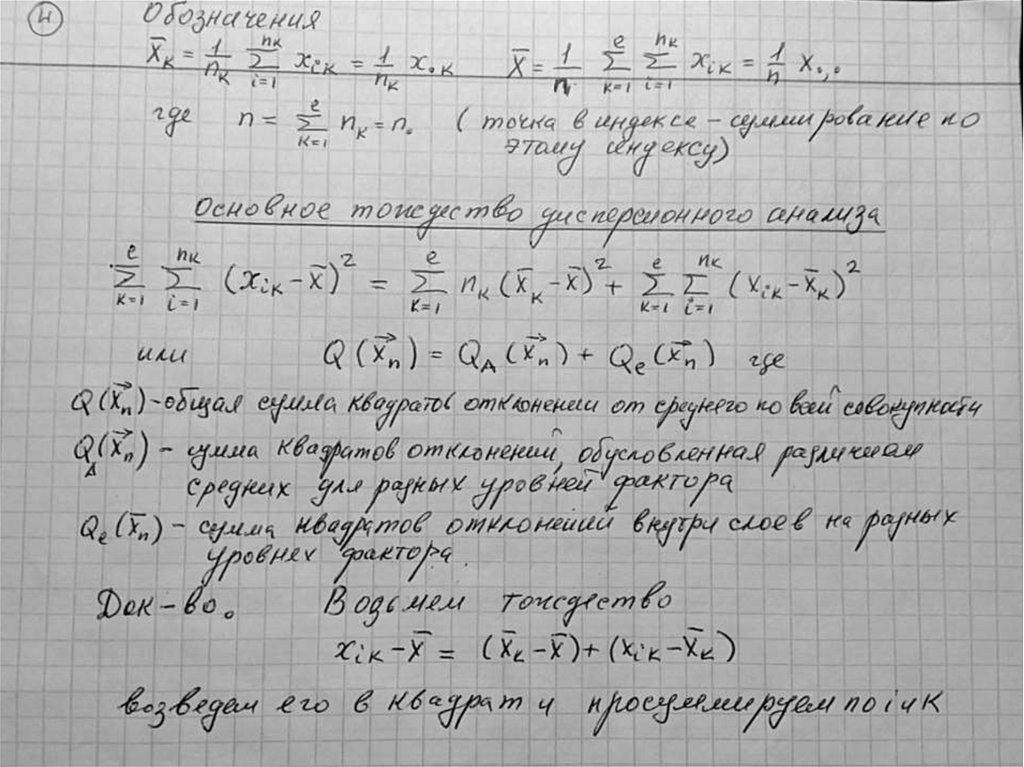 4
Обозначения
X̄ₖ = 1/nₖ Σᵢ₌₁ⁿᵏ xᵢₖ = 1/nₖ x•ₖ X̄ = 1/n Σₖ₌₁ᵉ Σᵢ₌₁ⁿᵏ xᵢₖ = 1/n X•,•
где n = Σₖ₌₁ᵉ nₖ = n• (точка в индексе – суммирование по
этому индексу)
Основное тождество дисперсионного анализа
Σₖ₌₁ᵉ Σᵢ₌₁ⁿᵏ (xᵢₖ – x̄)² = Σₖ₌₁ᵉ nₖ (x̄ₖ – x̄)² + Σₖ₌₁ᵉ Σᵢ₌₁ⁿᵏ (xᵢₖ – x̄ₖ)²
или Q(x⃗ₙ) = Q_A(x⃗ₙ) + Qₑ(x⃗ₙ) где
Q(x⃗ₙ) – общая сумма квадратов отклонений от среднего по всей совокупности
Q_A(x⃗ₙ) – сумма квадратов отклонений, обусловленная различием
средних для разных уровней фактора
Qₑ(x̄ₙ) – сумма квадратов отклонений внутри слоев на разных
уровнях фактора.
Док-во. Возьмем тождество
xᵢₖ – x̄ = (x̄ₖ – x̄) + (xᵢₖ – x̄ₖ)
возведем его в квадрат и просуммируем по i и k